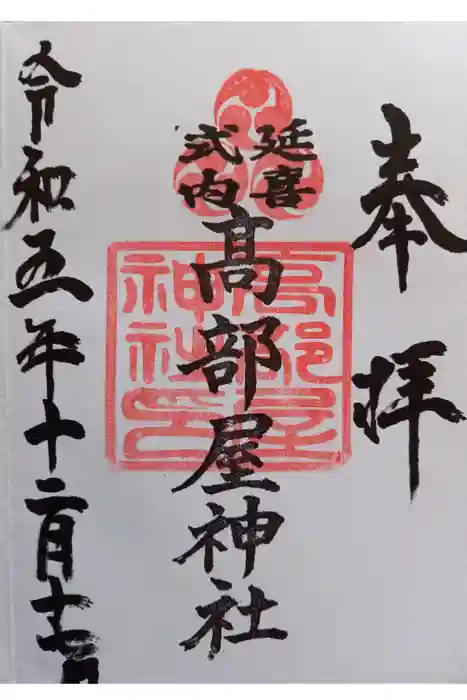 奉拝
延喜
式内
髙部屋神社
高部屋
神社印
令和五年十二月十